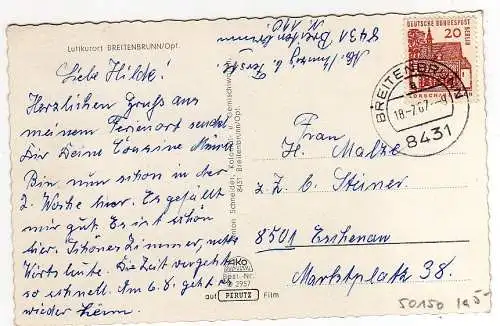 Luftkurort BREITENBRUNN/Opf.
Liebe Hilde!
Herzlichen Gruss aus
meinem Ferienort sendet
Dir Deine Cousine
Bin nun schon in der
2. Woche hier. Es gefällt
mir gut. Es ist schön
hier. Schönes Zimmer, nette
Wirtsleute. Die Zeit vergeht
so schnell. Am 6. 8. geht es
wieder heim.
8431
Schneider, Kolonial- u. Gemischtwaren
8431 Breitenbrunn/Opf.
ako
Best.-Nr.
2957
auf PERUTZ Film
DEUTSCHE BUNDESPOST BERLIN
20
BREITENBRUNN
18-7.67
8431
Frau
H. Malze
z. Z. b. Steiner
8501 Eschenau
Marktplatz 38.
50150